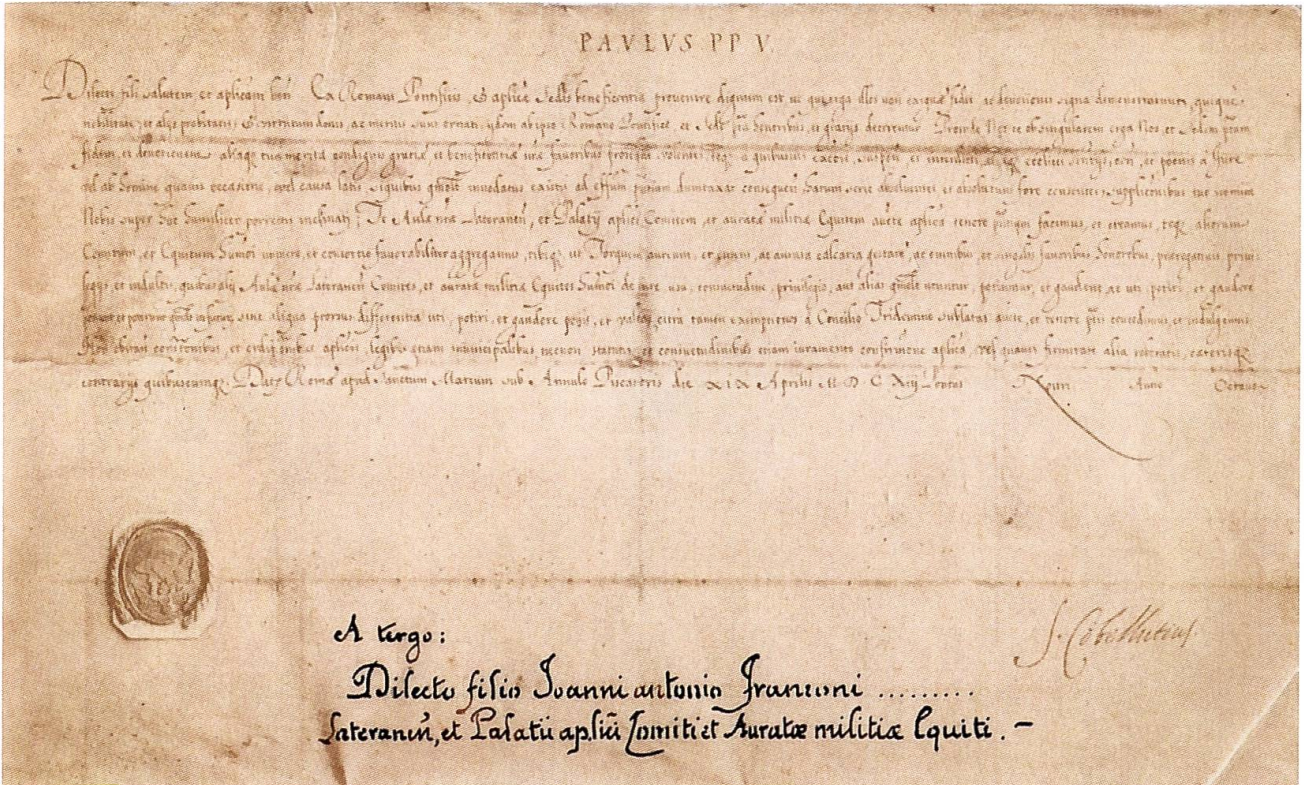 PAVLVS PP V.
Dilecte fili salutem, et aplicam ben Ex Romani Pontificis, et aplicæ Sedis beneficentia provenire dignum est, ut illos non exiguæ fidei ac devotionis signa demonstrarunt, quique
nobilitate, et alijs probitatis, et virtutum donis, ac meritis sunt ornati, ijdem ab ipso Romano Pontifice, et Sede honoribus, et gratijs decorentur Proinde Nos te ob singularem erga Nos, et Sedem
fidem, et devotionem aliaque tua merita condignis gratiæ, et beneficentiæ favoribus prosequi volentes, Teque a quibusvis et interdicti et poenis a Jure
vel ab homine quavis occasione, vel causa latis, siquibus innodatus existis ad effum duntaxat consequen harum serie absolventes et absolutum fore censentes, supplicationibus tuo nomine
Nobis super hoc humiliter porrectis inclinati, Te Aulæ nræ Lateranen, et Palatij aplici Comitem, et auratæ militiæ Equitem aucte aplica tenore facimus, et creamus, teque aliorum
Comitum, et Equitum numero, et consortio favorabiliter aggregamus, tibique ut Torquem aureum, et ensem, ac aurata calcaria gestare, ac omnibus et singulis favoribus honoribus, prerogativis privi
legijs, et indultis, quibus alij Aulæ nræ Lateranen Comites, et auratæ militiæ Equites de jure, usu, consuetudine, privilegio, aut alias utuntur, potiuntur, et gaudent, ac uti, potiri, et gaudere
possunt et poterunt in futurum, sine aliqua prorsus differentia uti, potiri, et gaudere citra tamen exemptiones a Concilio Tridentino sublatas aucte, et tenore concedimus, et indulgemus
Non obstan et ordinibus aplicis, legibus etiam municipalibus necnon statutis et consuetudinibus etiam iuramento confirmone aplica, vel quavis firmitate alia roboratis, cæterisque
contrarijs quibuscumque. Dat Romæ apud Sanctum Marcum sub Annulo Piscatoris die XIX Aprilis M D C XIJ Pontus Nouri Anno Octavo
S. Cobellutius
A tergo:
Dilecto filio Joanni antonio Franconi .........
Lateranen̄, et Palatii aplici Comiti et Auratæ militiæ Equiti. –